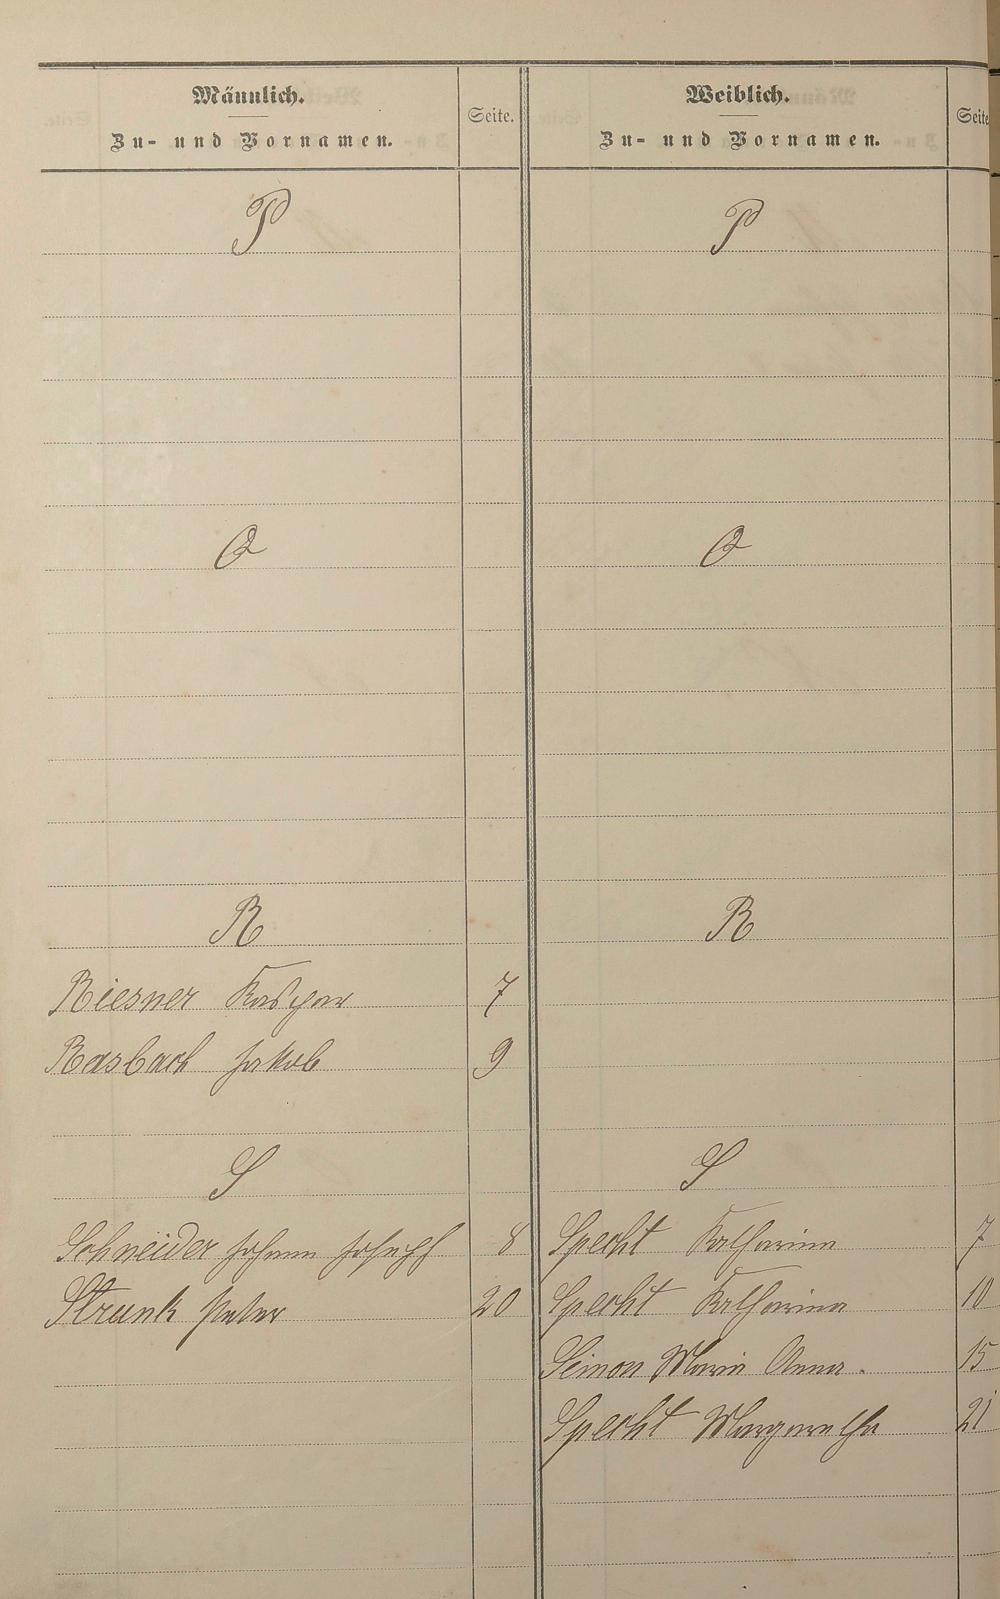 Männlich.
Zu- und Vornamen.
Seite.
P
O
R
Riesner Kaspar 7
Rasbach Jakob 9
S
Schneider Johann Joseph 8
Strunk Peter 20
Weiblich.
Zu- und Vornamen.
Seite
P
O
R
S
Specht Katharina 7
Specht Katharina 10
Simon Maria Anna. 15
Specht Margaretha 21